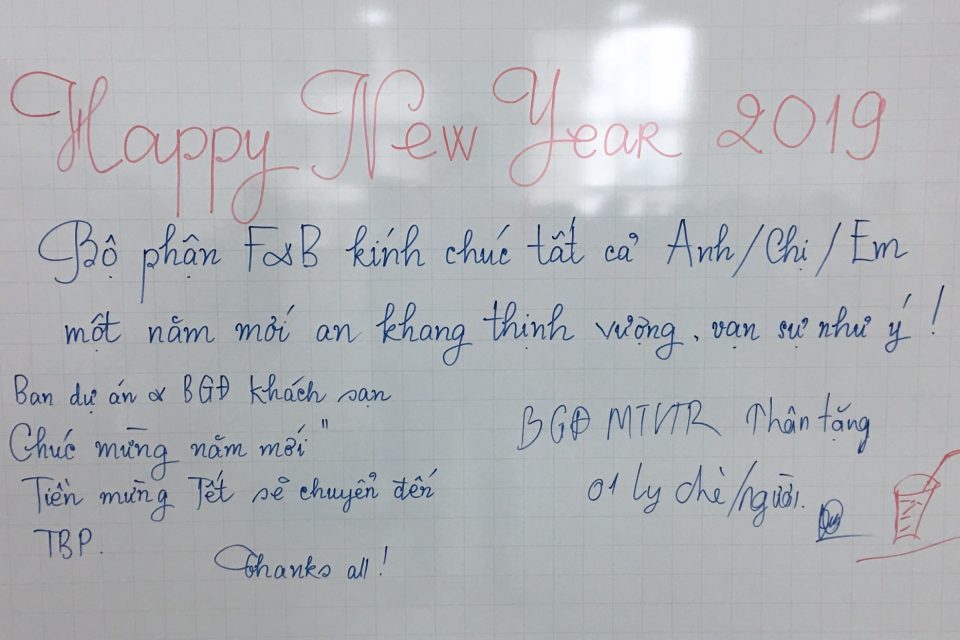 Happy New Year 2019
Bộ phận F&B kính chúc tất cả Anh/Chị/Em
một năm mới an khang thịnh vượng, vạn sự như ý!
Ban dự án & BGĐ khách sạn
Chúc mừng năm mới"
Tiền mừng Tết sẽ chuyển đến
TBP.
Thanks all!
BGĐ MTVTR Thân tặng
01 ly chè/người.